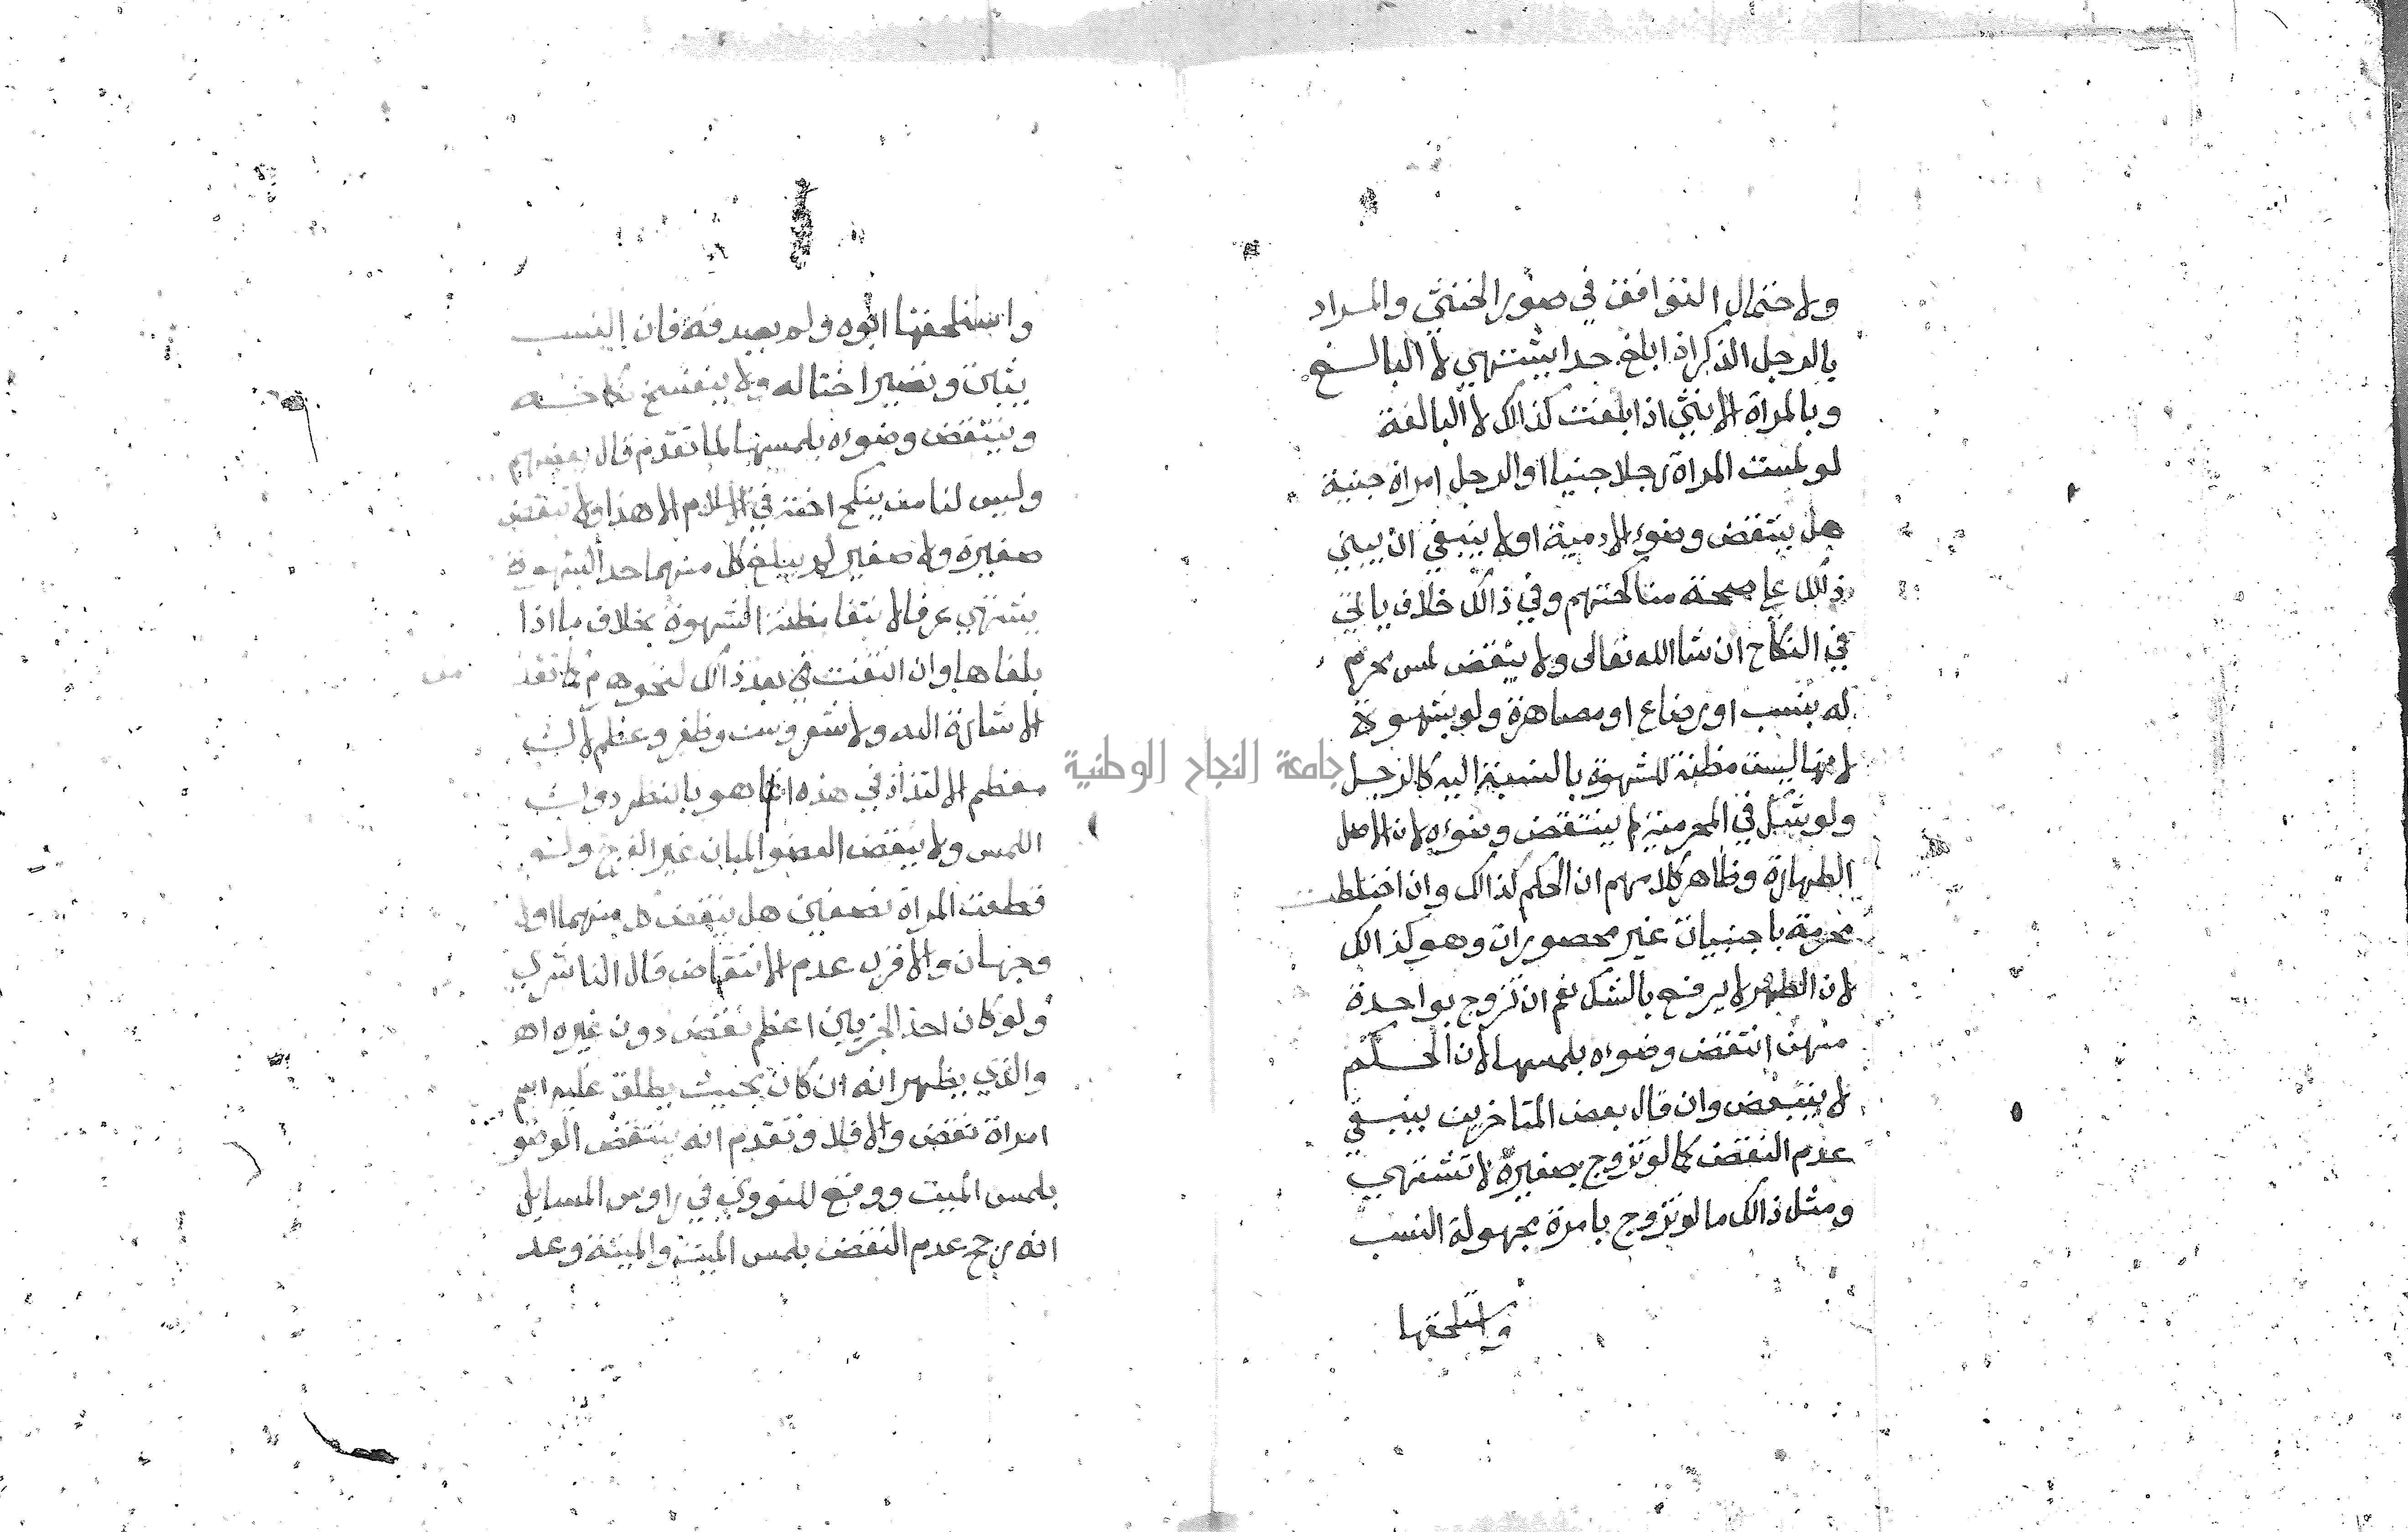 ولاحتمال التوافق في صور الخنثى والمراد
بالرجل الذكر اذا بلغ حدا يشتهي لا البالغ
وبالمراة الانثى اذا بلغت كذالك لا البالغة
لو لمست المراة رجلا جنيا او الرجل امراة جنية
هل ينتقض وضوء الادمية او لا ينبغي ان يبنى
ذلك على صحة مناكحتهم وفي ذالك خلاف ياتي
في النكاح ان شا الله تعالى ولا ينقض لمس محرم
له بنسب او رضاع او مصاهرة ولو بشهوة
لانها ليست مظنة للشهوة بالنسبة اليه كالرجل
ولو شك في المحرمية لم ينتقض وضوءه لان الاصل
الطهارة وظاهر كلامهم ان الحكم كذالك وان اختلطت
محرمة باجنبيات غير محصورات وهو كذالك
لان الطهر لا يرفع بالشك نعم ان تزوج بواحدة
منهن انتقض وضوءه بلمسها لان الحكم
لا يتبعض وان قال بعض المتاخرين ينبغي
عدم النقض كما لو تزوج بصغيرة لا تشتهي
ومثل ذالك ما لو تزوج بامرة مجهولة النسب
واستلحقها
واستلحقها ابوه ولم يصدقه فان النسب
يثبت وتصير اختا له ولا ينفسخ نكاحه
وينتقض وضوءه بلمسها لما تقدم قال بعضهم
وليس لنا من ينكح اخته في الاسلام الا هذا ولا تنقض
صغيرة ولا صغير لم يبلغ كل منهما حد الشهوة
يشتهي عرفا لانتفا مظنة الشهوة بخلاف ما اذا
بلغاها وان انتفت في بعد ذالك لنحو هرم لما تقد
الاشارة اليه ولا شعر وسن وظفر وعظم لان
معظم الالتذاذ في هذه انما هو بالنظر دون
اللمس ولا ينقض العضو المبان غير الفرج ولو
قطعت المراة نصفين هل ينقض كل منهما اولا
وجهان والاقرب عدم الانتقاض قال الناشري
ولو كان احد الجزيين اعظم نقض دون غيره اه
والذي يظهر انه ان كان بحيث يطلق عليه اسم
امراة نقض والا فلا وتقدم انه ينتقض الوضو
بلمس الميت ووقع للنووي في راوس المسايل
انه رجح عدم النقض بلمس الميت والميتة وعد
جامعة النجاح الوطنية